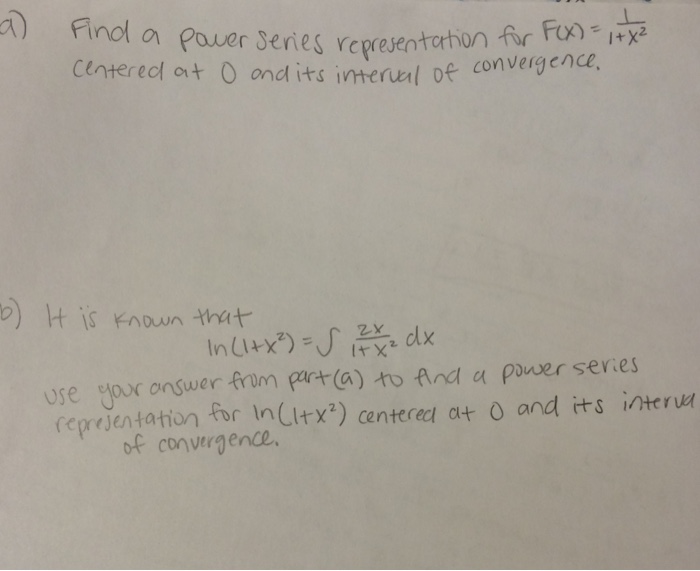 a) Find a power series representation for F(x) = 1/(1+x²)
centered at 0 and its interval of convergence.
b) It is known that
ln(1+x²) = ∫ 2x/(1+x²) dx
use your answer from part (a) to find a power series
representation for ln(1+x²) centered at 0 and its interva
of convergence.